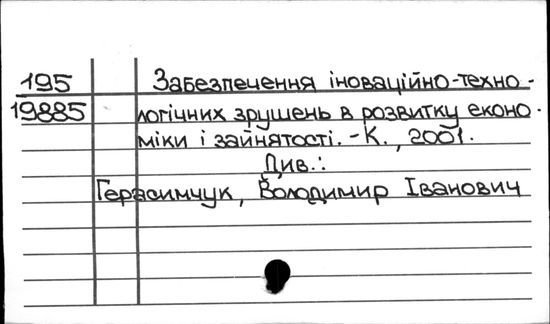 195 Забезпечення іноваційно-техно-
19885 логічних зрушень в розвитку еконо-
міки і зайнятості. - К., 2001.
Див.:
Герасимчук, Володимир Іванович